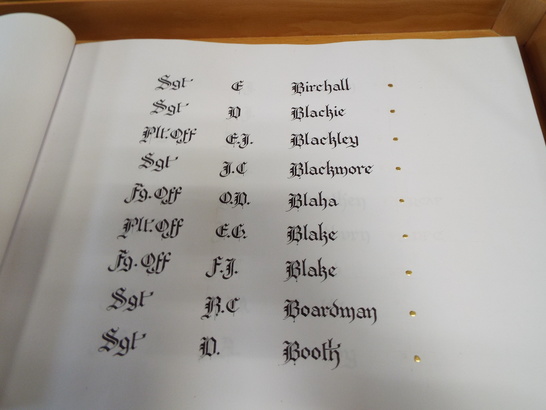 Sgt E Birchall
Sgt D Blackie
Plt.Off E.J. Blackley
Sgt J.C Blackmore
Fg.Off O.D. Blaha
Plt.Off E.G. Blake
Fg.Off F.J. Blake
Sgt R.C Boardman
Sgt D. Booth